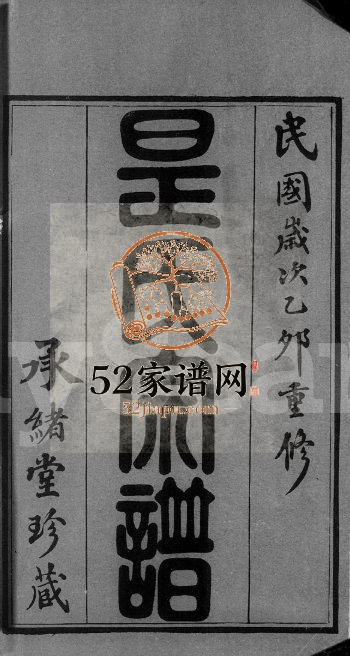 民國歲次乙卯重修
是氏宗譜
承緒堂珍藏
52家谱网
52jiapu.com